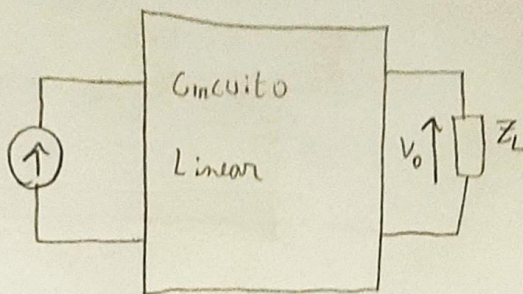 Circuito
Linear
V₀
Z_L